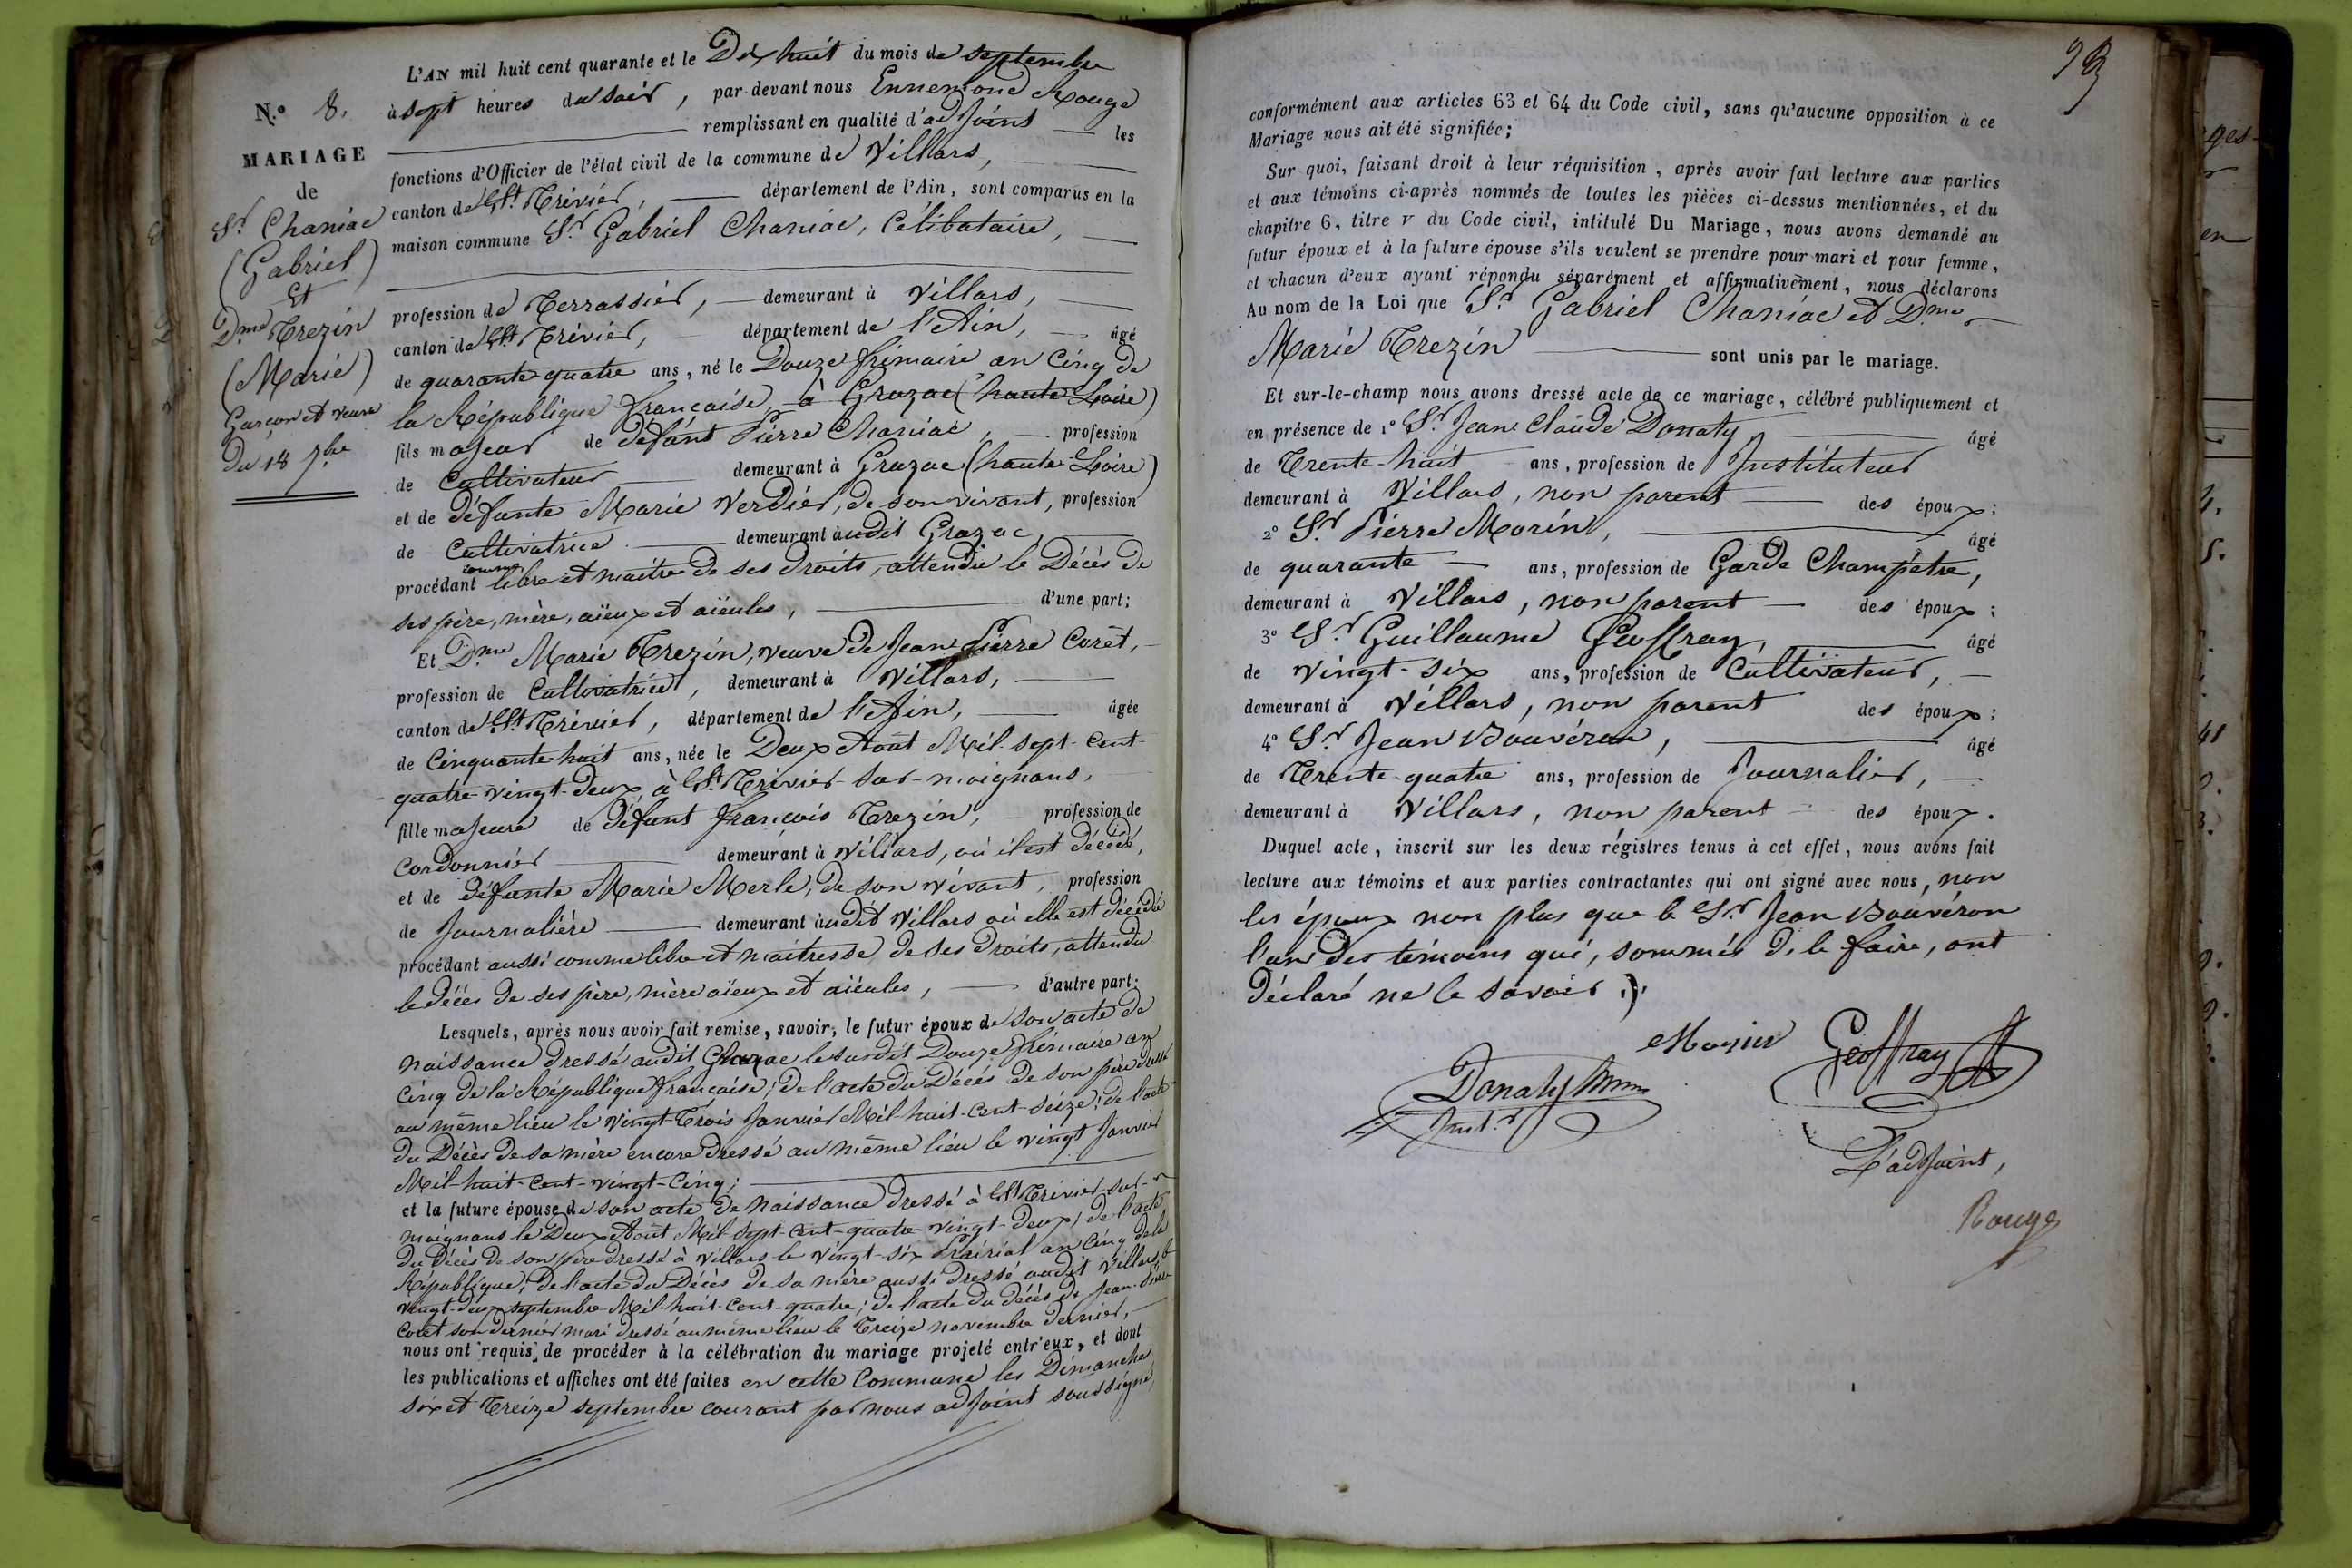 N.° 8.
MARIAGE
de
Sr. Chaniac
(Gabriel)
Et
Dme. Trezin
(Marie)
Garçon et veuve
Du 18 7bre
L'AN mil huit cent quarante et le Dix huit du mois de septembre
à sept heures du soir, par-devant nous Ennemond Rouge
remplissant en qualité d'adjoint les
fonctions d'Officier de l'état civil de la commune de Villars,
canton de St. Trévier, département de l'Ain, sont comparus en la
maison commune Sr. Gabriel Chaniac, Célibataire,
profession de Terrassier, demeurant à Villars,
canton de St. Trévier, département de l'Ain, âgé
de quarante quatre ans, né le Douze frimaire an Cinq de
la République française, à Grazac (haute Loire)
fils majeur de défunt Pierre Chaniac, profession
de Cultivateur demeurant à Grazac (haute-Loire)
et de défunte Marie Verdier, de son vivant, profession
de Cultivatrice demeurant àudit Grazac,
procédant comme libre et maitre de ses droits, attendu le Décès de
ses père, mère, aïeux et aïeules, d'une part;
Et Dme. Marie Trezin, veuve de Jean Pierre Coret,
profession de Cultivatrice, demeurant à Villars,
canton de St. Trévier, département de l'Ain, âgée
de Cinquante huit ans, née le Deux Août Mil-sept-Cent-
quatre-vingt-Deux, à St. Trévier-sur-moignans,
fille majeure de défunt françois Trezin, profession de
Cordonnier demeurant à Villars, où il est décédé,
et de défunte Marie Merle, de son vivant, profession
de Journalière demeurant àudit Villars où elle est décédée
procédant aussi comme libre et maitresse de ses droits, attendu
le décès de ses père, mère aïeux et aïeules, d'autre part:
Lesquels, après nous avoir fait remise, savoir, le futur époux de son acte de
naissance dressé audit Grazac le susdit Douze frimaire an
Cinq de la République française; de l'acte du Décès de son père dressé
au même lieu le vingt-Trois Janvier Mil-huit-Cent-Seize; de l'acte
du Décès de sa mère encore dressé au même lieu le vingt Janvier
Mil-huit-Cent-vingt-Cinq;
et la future épouse de son acte de naissance dressé à St. Trévier-sur-
moignans le Deux Août Mil-sept-Cent-quatre-vingt-deux; de l'acte
du Décès de son père dressé à Villars le vingt-six Prairial an Cinq de la
République; de l'acte du Décès de sa mère aussi dressé audit Villars le
vingt-deux septembre Mil-huit-Cent-quatre; de l'acte du décès de Jean-Pierre
Coret son dernier mari dressé au même lieu le Treize novembre dernier,
nous ont requis de procéder à la célébration du mariage projeté entr'eux, et dont
les publications et affiches ont été faites en cette Commune les Dimanche
six et Treize septembre courant par nous adjoint soussigné,
conformément aux articles 63 et 64 du Code civil, sans qu'aucune opposition à ce
Mariage nous ait été signifiée;
Sur quoi, faisant droit à leur réquisition, après avoir fait lecture aux parties
et aux témoins ci-après nommés de toutes les pièces ci-dessus mentionnées, et du
chapitre 6, titre V du Code civil, intitulé Du Mariage, nous avons demandé au
futur époux et à la future épouse s'ils veulent se prendre pour mari et pour femme,
et chacun d'eux ayant répondu séparément et affirmativement, nous déclarons
Au nom de la Loi que Sr. Gabriel Chaniac et Dme.
Marie Trezin sont unis par le mariage.
Et sur-le-champ nous avons dressé acte de ce mariage, célébré publiquement et
en présence de 1° Sr. Jean Claude Donaty, âgé
de Trente-huit ans, profession de Instituteur
demeurant à Villars, non parent des époux;
2° Sr. Pierre Morin, âgé
de quarante ans, profession de Garde Champêtre,
demeurant à Villars, non parent des époux;
3° Sr. Guillaume Geoffray, âgé
de vingt-six ans, profession de Cultivateur,
demeurant à Villars, non parent des époux;
4° Sr. Jean Bouvéron, âgé
de Trente-quatre ans, profession de Journalier,
demeurant à Villars, non parent des époux.
Duquel acte, inscrit sur les deux régistres tenus à cet effet, nous avons fait
lecture aux témoins et aux parties contractantes qui ont signé avec nous, non
les époux non plus que le Sr. Jean Bouvéron
l'un des témoins qui, sommés de le faire, ont
déclaré ne le savoir.
Geoffray
Donaty
Instr.
L'adjoint,
Rouge